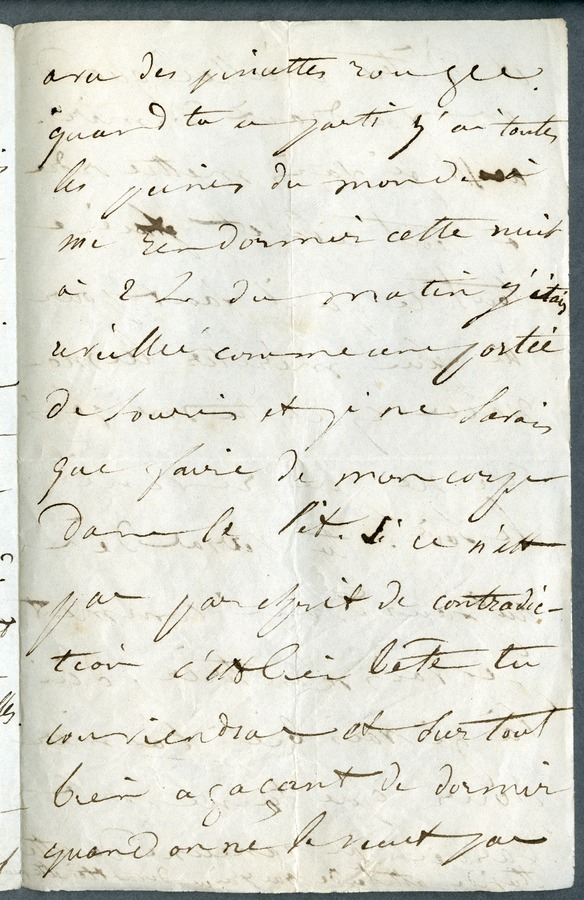 avec des pincettes rouges.
quand tu es parti j'ai toutes
les peines du monde à
me rendormir cette nuit
à 2 h du matin j'étais
éveillée comme une portée
de souris et je ne savais
que faire de mon corps
dans le lit. Si ce n'est
pas par esprit de contradic-
tion c'est bien bête tu
conviendras et surtout
bien agaçant de dormir
quand on ne le veut pas